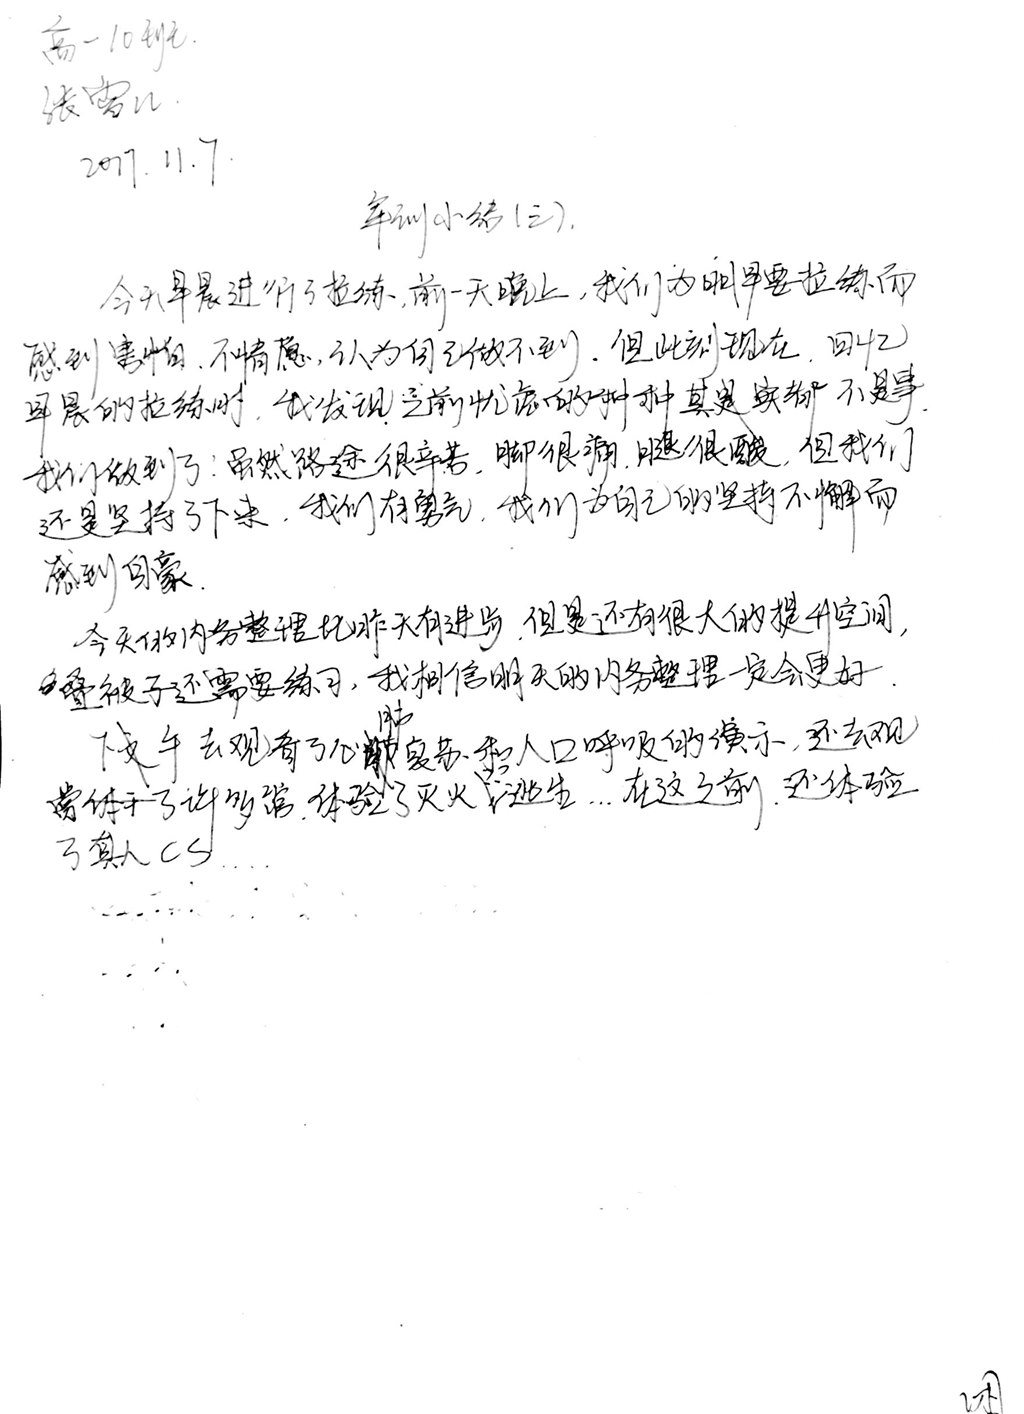 高一10班.
张雪儿.
2017.11.7.
军训小结(三).
今天早晨进行了拉练,前一天晚上,我们为明早要拉练而
感到害怕、不情愿,认为自己做不到.但此刻现在,回忆
早晨的拉练时,我发现之前忧虑的种种其是实都不是事.
我们做到了:虽然路途很辛苦,脚很痛,腿很酸,但我们
还是坚持了下来,我们有勇气,我们为自己的坚持不懈而
感到自豪.
今天的内务整理比昨天有进步,但是还有很大的提升空间,
叠被子还需要练习,我相信明天的内务整理一定会更好.
下午去观看了心肺复苏和人口呼吸的演示,还去观
了许多馆,体验了灭火、逃生...在这之前,还体验
了真人CS....